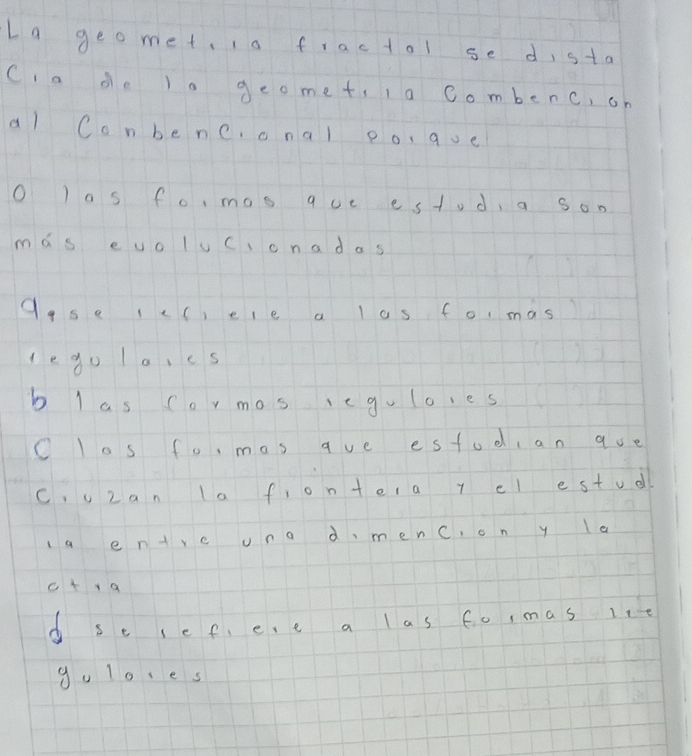 La geometria fractal se dista
cia de la geometria combencion
al conbencional porque
o las formas que estudia son
más evolucionadas
a se refiere a las formas
regulares
b las formas regulares
c las formas que estudian que
cruzan la frontera y el estud
ia entre una dimencion y la
otra
d se refiere a las formas irre
gulares